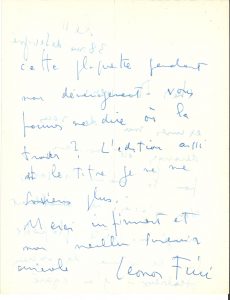 cette plaquette pendant
mon déménagement. Vous
pouvez me dire où la
trouver? L'edition aussi
et le titre je ne me
souviens plus.
Merci infiniment et
mon meilleur souvenir
amicale Leonor Fini